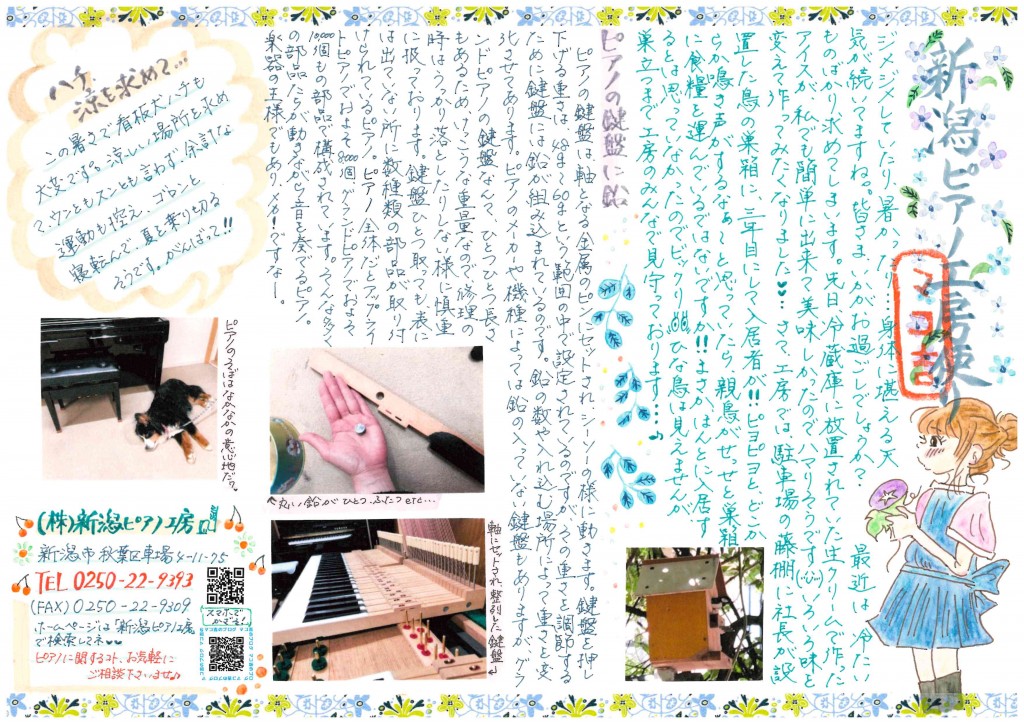 新潟ピアノ工房便り
マコ吉
ジメジメしていたり、暑かったり…身体に堪える天
気が続いてますね。皆さま、いかがお過ごしでしょうか？ 最近は、冷たい
ものばかり求めてしまいます。先日、冷蔵庫に放置されていた生クリームで作った
アイスが、私でも簡単に出来て美味しかったので、ハマりそうです(‥)いろいろ味を
変えて作ってみたくなりました♥♥さて、工房では、駐車場の藤棚に社長が設
置した鳥の巣箱に、三年目にして入居者が!!ピヨピヨと、どこか
らか鳴き声がするなぁ〜と思っていたら、親鳥がせっせと巣箱
に食糧を運んでいるではないですか!!まさか、ほんとに入居す
るとは思っていなかったのでビックリ!!ひな鳥は見えませんが、
巣立つまで工房のみんなで見守っております…♪
ピアノの鍵盤に鉛
ピアノの鍵盤は、軸となる金属のピンにセットされ、シーソーの様に動きます。鍵盤を押し
下げる重さは、48gて60gという範囲の中で設定されているのですが、その重さを調節する
ために鍵盤には鉛が組み込まれているのです。鉛の数や入れ込む場所によって重さを変
化させてあります。ピアノのメーカーや機種によっては鉛の入っていない鍵盤もありますが、グラ
ンドピアノの鍵盤なんて、ひとつひとつ長さ
もあるため、けっこうな重量なので、修理の
時はうっかり落としたりしない様に慎重
に扱っております。鍵盤ひとつ取っても、表に
は出ていない所に数種類の部品が取り付
けられているピアノ。ピアノ全体だとアップライ
トピアノでおよそ8,000個、グランドピアノでおよそ
10,000個もの部品で構成されています。そんな多く
の部品たちが動きながら音を奏でるピアノ。
楽器の王様でもあり、メカ!ですな〜。
ハチ、
涼を求めて…
この暑さで看板犬ハチも
大変です。涼しい場所を求め
て、ウンともスンとも言わず、余計な
運動も控え、ゴロンと
寝転んで、夏を乗り切る
そうです。がんばって!!
ピアノのそばはなかなかの意心地だワ。
↑丸い鉛がひとつ、ふたつetc…
軸にセットされ整列した鍵盤
(株)新潟ピアノ工房
新潟市秋葉区車場4-11-75
TEL 0250-22-9393
(FAX) 0250-22-9309
ホームページは「新潟ピアノ工房」
で検索してネ♥♥
ピアノに関するコト、お気軽に
ご相談下さいませ♪
スマホで
かざそう!